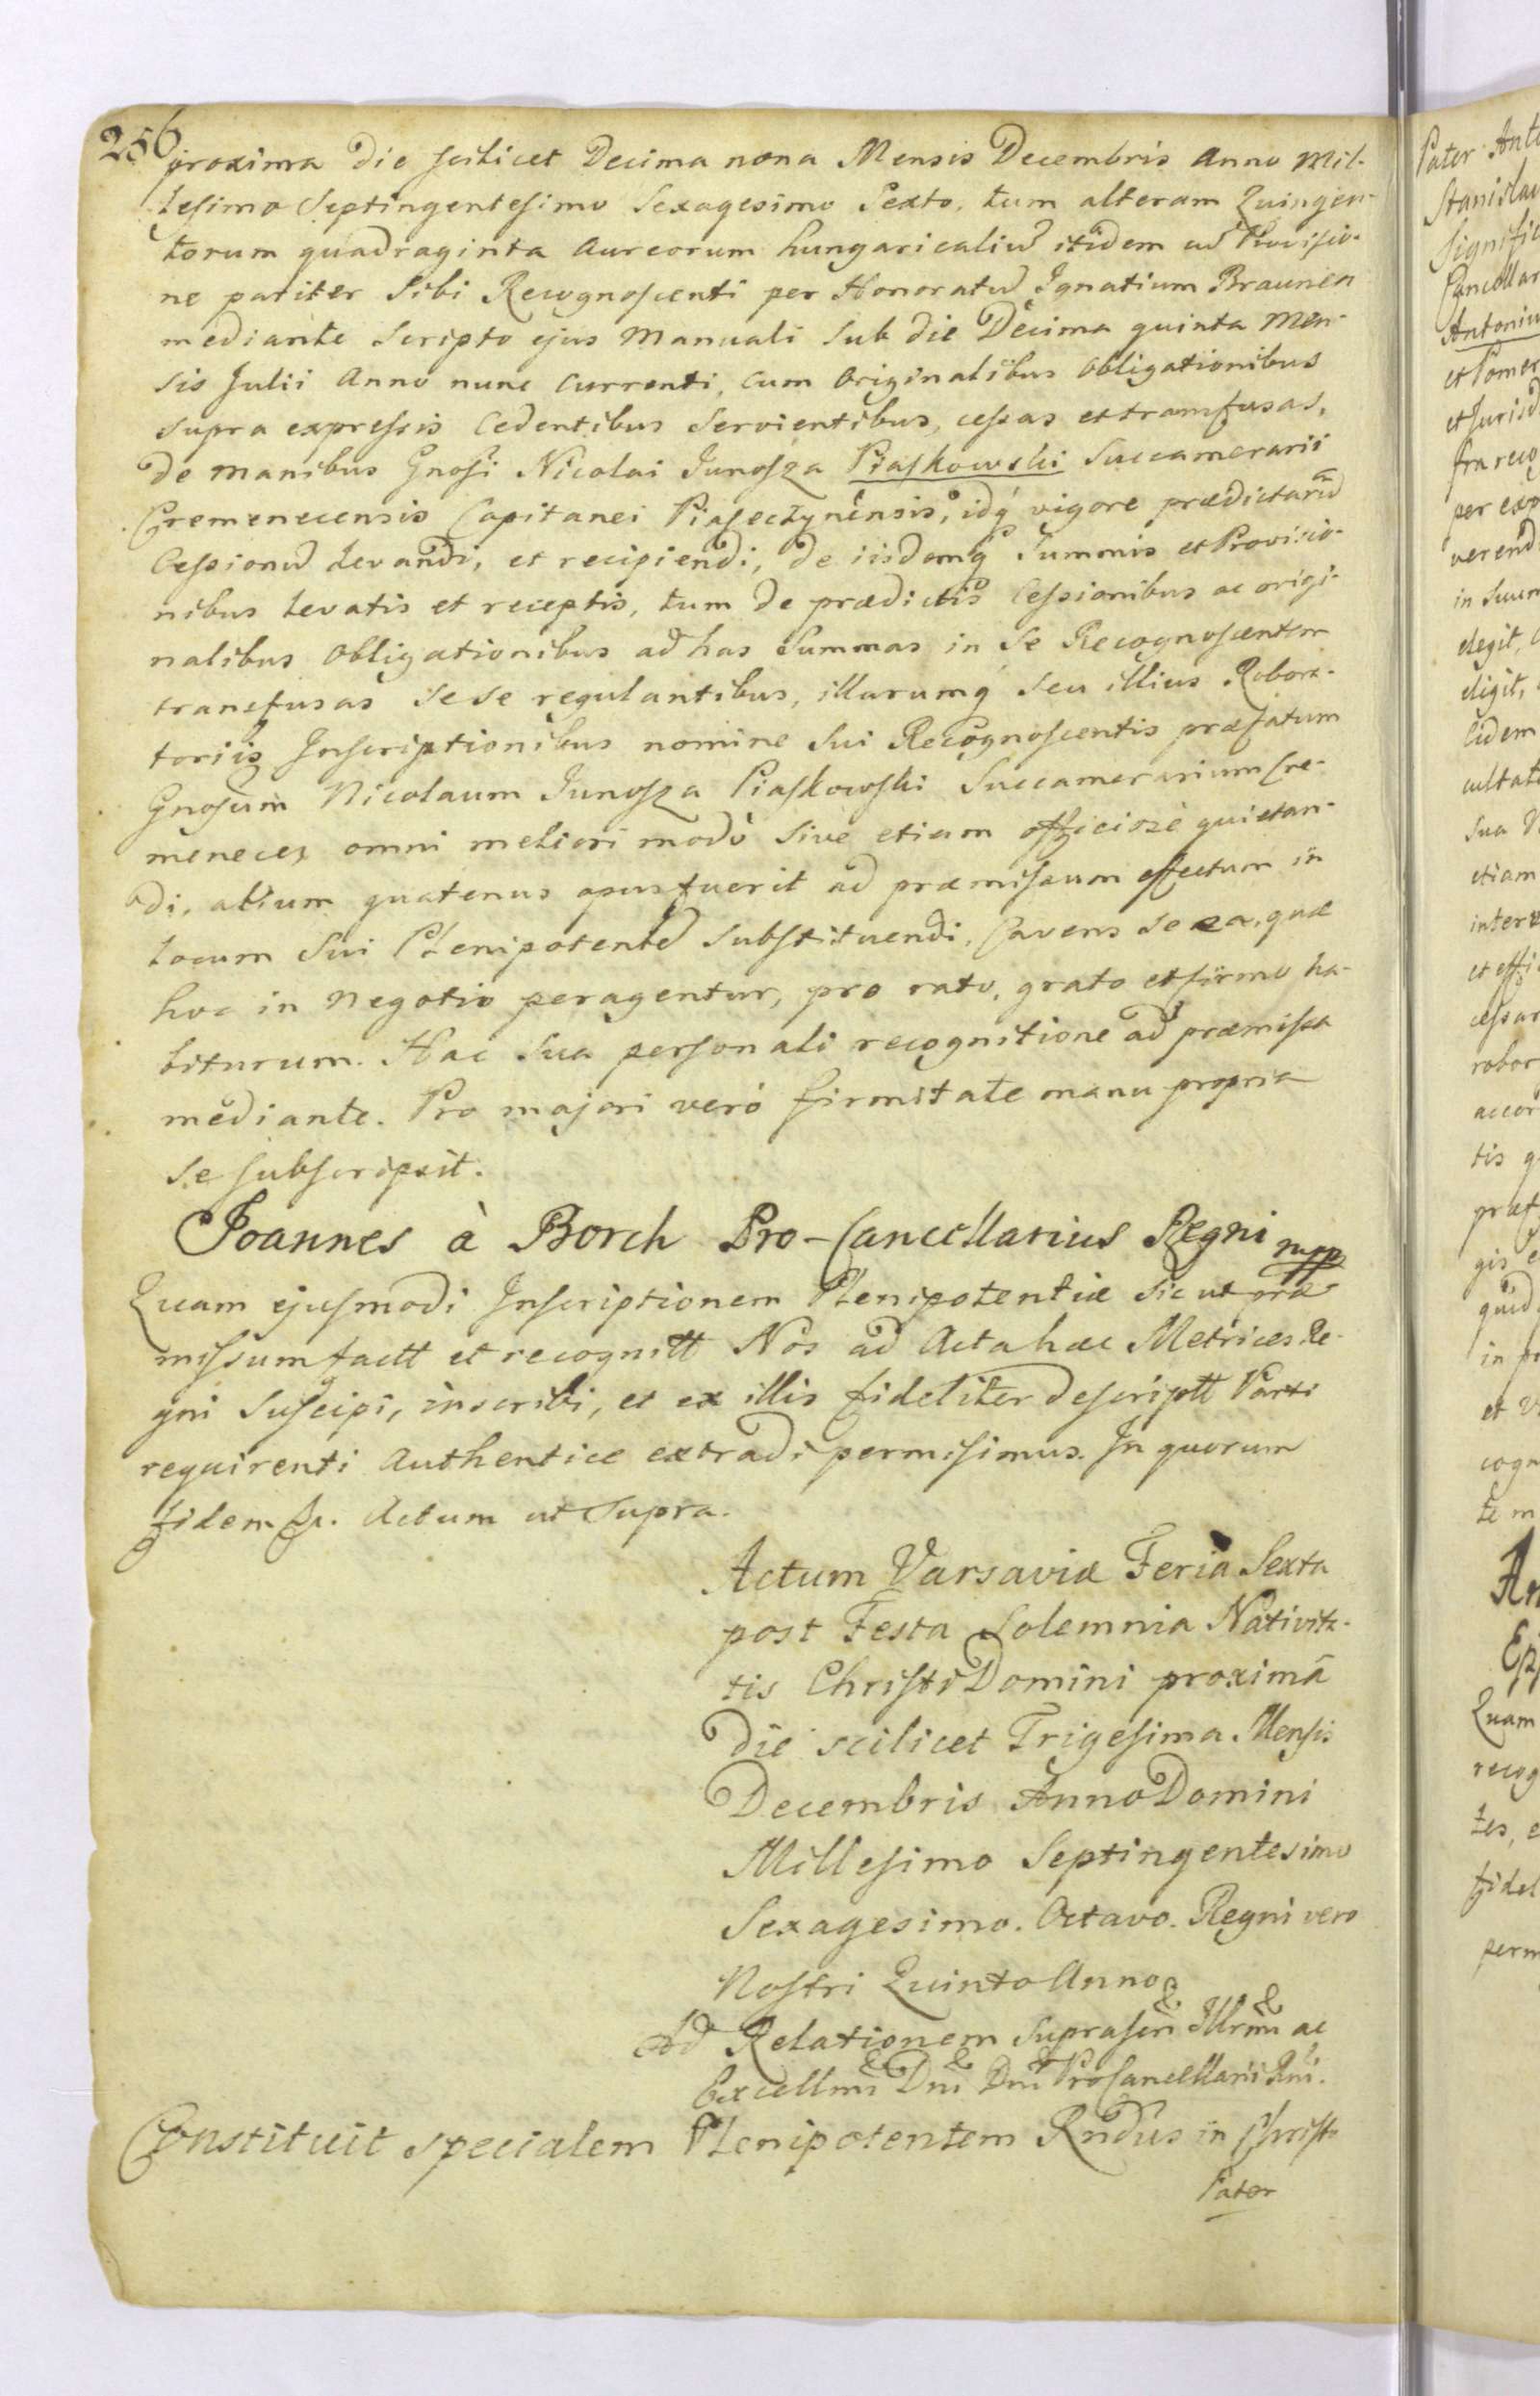 256
proxima die scilicet Decima nona Mensis Decembris Anno Mil-
lesimo Septingentesimo Sexagesimo Sexto, tum alteram Quingen-
torum quadraginta Aureorum hungaricaliu itidem ad Provisio-
ne pariter Sibi Recognoscenti per Honoratu Ignatium Braunen
mediante Scripto ejus Manuali Sub die Decima quinta Men-
sis Julii Anno nunc currenti, cum Originalibus Obligationibus
supra expressis Cedentibus Servientibus, cessas et transfusas,
de manibus Gnosi Nicolai Junosza Piaskowski Succamerarii
Cremenecensis Capitanei Piasectynensis, idq vigore prædictarū
Cessionu levandi, et recipiendi, de iisdemq Summis et Provisio-
nibus levatis et receptis, tum de prædictis Cessionibus ac origi-
nalibus Obligationibus ad has Summas in Se Recognoscentem
transfusas Se se regulantibus, illarumq seu illius Robora-
toriis Inscriptionibus nomine Sui Recognoscentis præfatum
Gnosum Nicolaum Junosza Piaskowski Succamerarium Cre-
menecen omni meliori modò Sive etiam officiosè quietan-
di, alium quatenus opus fuerit ad præmissum effectum in
locum Sui Plenipotente substituendi, Cavens se ea, quæ
hoc in negotio peragentur, pro rato, grato et firmo ha-
biturum. Hac sua personali recognitione ad præmissa
mediante. Pro majori verò firmitate manu propria
se subscripsit.
Joannes à Borch Pro-Cancellarius Regni mpp
Quam ejusmodi Inscriptionem Plenipotentiæ sic ut præ-
missum factt et recognitt Nos ad Acta hæc Metrices Re-
gni Suscipi, inscribi, et ex illis fideliter descriptt Parti
requirenti Authentice extradi permisimus. In quorum
fidem &. Actum ut Supra.
Actum Varsaviæ Feriâ Sexta
post Festa Solemnia Nativita-
tis Christi Domini proximâ
die scilicet Trigesima Mensis
Decembris Anno Domini
Millesimo Septingentesimo
Sexagesimo. Octavo. Regni vero
Nostri Quinto Anno
Ad Relationem suprascri Illrmi ac
Excellmi Dni Dni ProCancellarii Rni.
Constituit specialem Plenipotentem Rndus in Christo
Pater
Pater Ant
Stanislau
Signific
Cancellar
Antoniu
et Pomer
et Jurisd
fra reco
per exp
verend
in Suum
elegit,
eligit,
lidem
cultat
sua
etiam
inter
et effi
cessar
robor
accor
tis q
præf
gis e
quid
in p
et
cogn
te m
An
Ep
Quam
recog
tes, e
fidel
perm